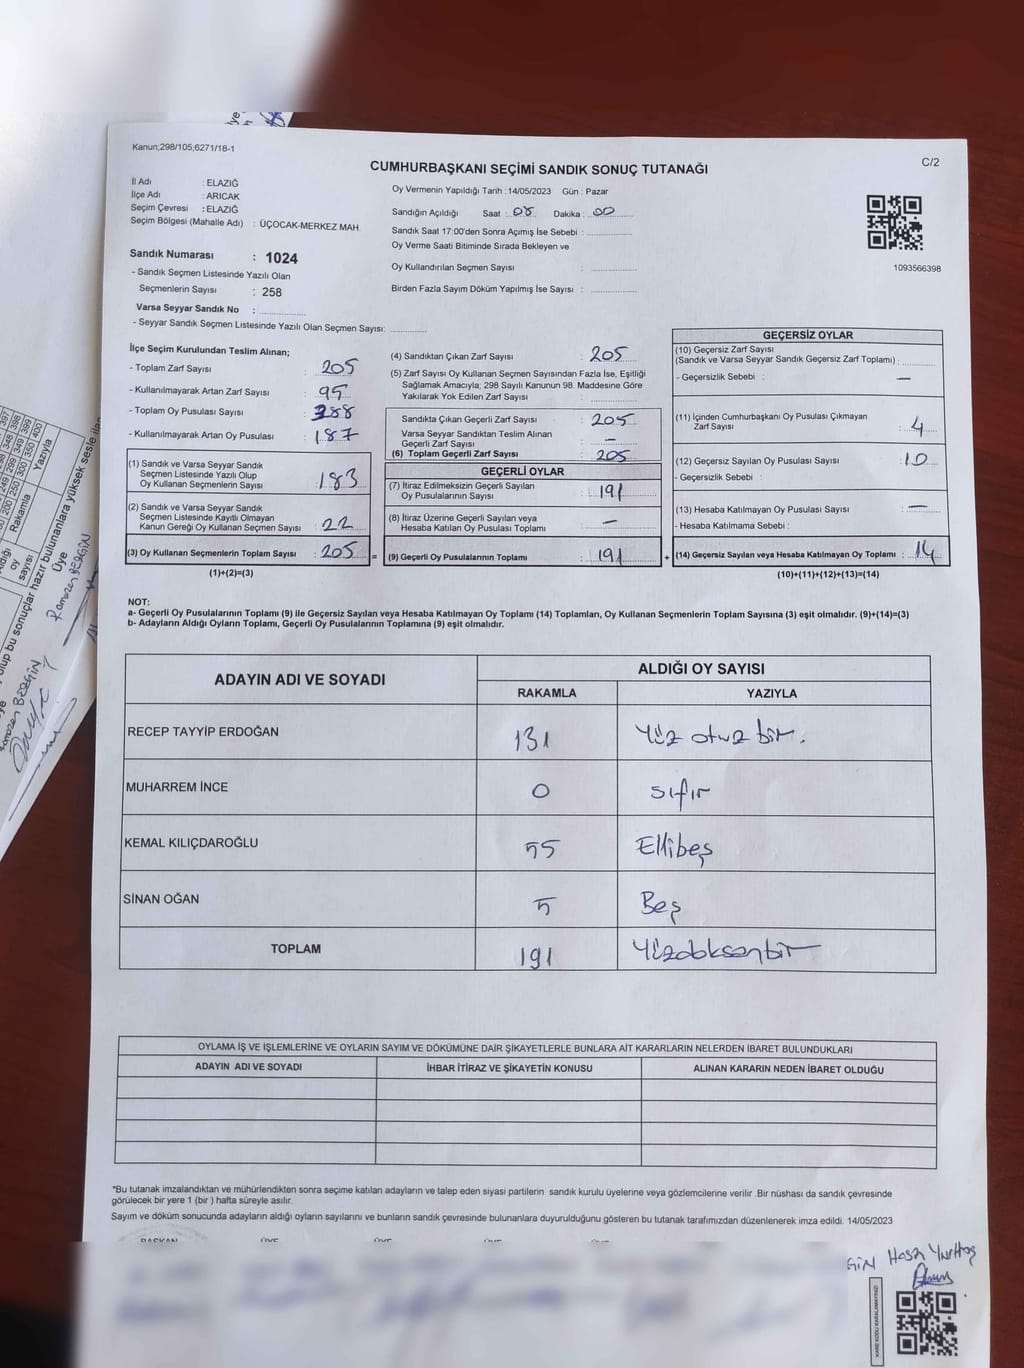 Kanun;298/105;6271/18-1
C/2
CUMHURBAŞKANI SEÇİMİ SANDIK SONUÇ TUTANAĞI
İl Adı : ELAZIĞ
İlçe Adı : ARICAK
Seçim Çevresi : ELAZIĞ
Seçim Bölgesi (Mahalle Adı) : ÜÇOCAK-MERKEZ MAH.
Sandık Numarası : 1024
- Sandık Seçmen Listesinde Yazılı Olan
Seçmenlerin Sayısı : 258
Varsa Seyyar Sandık No :
- Seyyar Sandık Seçmen Listesinde Yazılı Olan Seçmen Sayısı:
Oy Vermenin Yapıldığı Tarih : 14/05/2023 Gün : Pazar
Sandığın Açıldığı Saat : 08 Dakika : 00
Sandık Saat 17:00'den Sonra Açımış İse Sebebi :
Oy Verme Saati Bitiminde Sırada Bekleyen ve
Oy Kullandırılan Seçmen Sayısı :
Birden Fazla Sayım Döküm Yapılmış İse Sayısı :
1093566398
İlçe Seçim Kurulundan Teslim Alınan;
- Toplam Zarf Sayısı : 205
- Kullanılmayarak Artan Zarf Sayısı : 95
- Toplam Oy Pusulası Sayısı : 388
- Kullanılmayarak Artan Oy Pusulası : 187
(1) Sandık ve Varsa Seyyar Sandık
Seçmen Listesinde Yazılı Olup
Oy Kullanan Seçmenlerin Sayısı : 183
(2) Sandık ve Varsa Seyyar Sandık
Seçmen Listesinde Kayıtlı Olmayan
Kanun Gereği Oy Kullanan Seçmen Sayısı : 22
(3) Oy Kullanan Seçmenlerin Toplam Sayısı : 205 =
(1)+(2)=(3)
(4) Sandıktan Çıkan Zarf Sayısı : 205
(5) Zarf Sayısı Oy Kullanan Seçmen Sayısından Fazla İse, Eşitliği
Sağlamak Amacıyla; 298 Sayılı Kanunun 98. Maddesine Göre
Yakılarak Yok Edilen Zarf Sayısı :
Sandıkta Çıkan Geçerli Zarf Sayısı : 205
Varsa Seyyar Sandıktan Teslim Alınan
Geçerli Zarf Sayısı : —
(6) Toplam Geçerli Zarf Sayısı : 205
GEÇERLİ OYLAR
(7) İtiraz Edilmeksizin Geçerli Sayılan
Oy Pusulalarının Sayısı : 191
(8) İtiraz Üzerine Geçerli Sayılan veya
Hesaba Katılan Oy Pusulası Toplamı : —
(9) Geçerli Oy Pusulalarının Toplamı : 191 +
GEÇERSİZ OYLAR
(10) Geçersiz Zarf Sayısı
(Sandık ve Varsa Seyyar Sandık Geçersiz Zarf Toplamı) :
- Geçersizlik Sebebi : —
(11) İçinden Cumhurbaşkanı Oy Pusulası Çıkmayan
Zarf Sayısı : 4
(12) Geçersiz Sayılan Oy Pusulası Sayısı : 10
- Geçersizlik Sebebi :
(13) Hesaba Katılmayan Oy Pusulası Sayısı : —
- Hesaba Katılmama Sebebi :
(14) Geçersiz Sayılan veya Hesaba Katılmayan Oy Toplamı : 14
(10)+(11)+(12)+(13)=(14)
NOT:
a- Geçerli Oy Pusulalarının Toplamı (9) ile Geçersiz Sayılan veya Hesaba Katılmayan Oy Toplamı (14) Toplamları, Oy Kullanan Seçmenlerin Toplam Sayısına (3) eşit olmalıdır. (9)+(14)=(3)
b- Adayların Aldığı Oyların Toplamı, Geçerli Oy Pusulalarının Toplamına (9) eşit olmalıdır.
ADAYIN ADI VE SOYADI ALDIĞI OY SAYISI
RAKAMLA YAZIYLA
RECEP TAYYİP ERDOĞAN 131 Yüz otuz bir.
MUHARREM İNCE 0 sıfır
KEMAL KILIÇDAROĞLU 55 Ellibeş
SİNAN OĞAN 5 Beş
TOPLAM 191 Yüzdoksanbir
OYLAMA İŞ VE İŞLEMLERİNE VE OYLARIN SAYIM VE DÖKÜMÜNE DAİR ŞİKAYETLERLE BUNLARA AİT KARARLARIN NELERDEN İBARET BULUNDUKLARI
ADAYIN ADI VE SOYADI İHBAR İTİRAZ VE ŞİKAYETİN KONUSU ALINAN KARARIN NEDEN İBARET OLDUĞU
*Bu tutanak imzalandıktan ve mühürlendikten sonra seçime katılan adayların ve talep eden siyasi partilerin sandık kurulu üyelerine veya gözlemcilerine verilir .Bir nüshası da sandık çevresinde
görülecek bir yere 1 (bir ) hafta süreyle asılır.
Sayım ve döküm sonucunda adayların aldığı oyların sayılarını ve bunların sandık çevresinde bulunanlara duyurulduğunu gösteren bu tutanak tarafımızdan düzenlenerek imza edildi. 14/05/2023
BAŞKAN ÜYE ÜYE ÜYE ÜYE